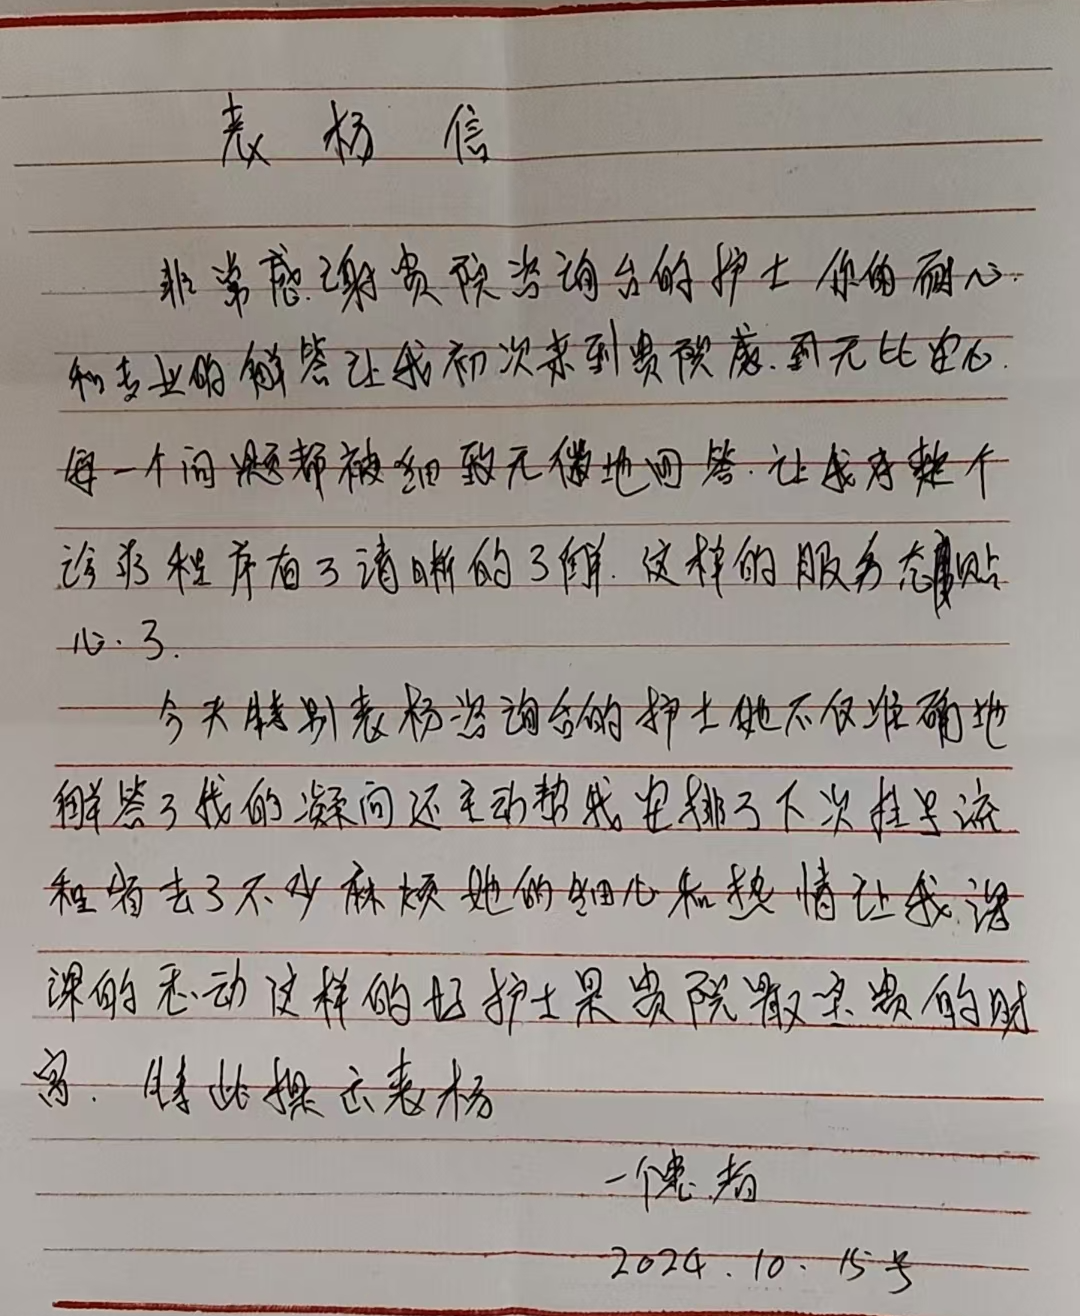 表杨信
非常感谢贵院咨询台的护士你的耐心.
和专业的解答让我初次来到贵院感到无比安心.
每一个问题都被细致无微地回答.让我对整个
诊疗程序有了清晰的了解.这样的服务态贴
心.了.
今天特别表杨咨询台的护士她不仅准确地
解答了我的凝问还主动帮我安排了下次挂号流
程省去了不少麻烦她的细心和热情让我深
深的感动这样的好护士是贵院最宝贵的财
富.特此提出表杨
一个患者
2024.10.15号